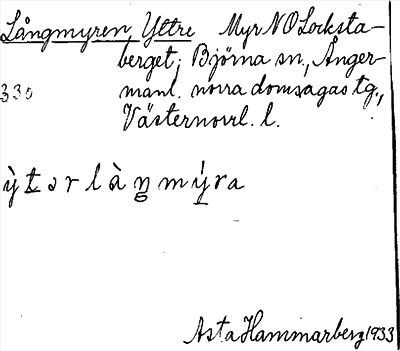 Långmyren, Yttre Myr NO Locksta-
berget; Björna sn., Ånger-
330 manl. norra domsagas tg.,
Västernorrl. l.
ỳt̲ər làŋ̲mý̲ra
Asta Hammarberg 1933